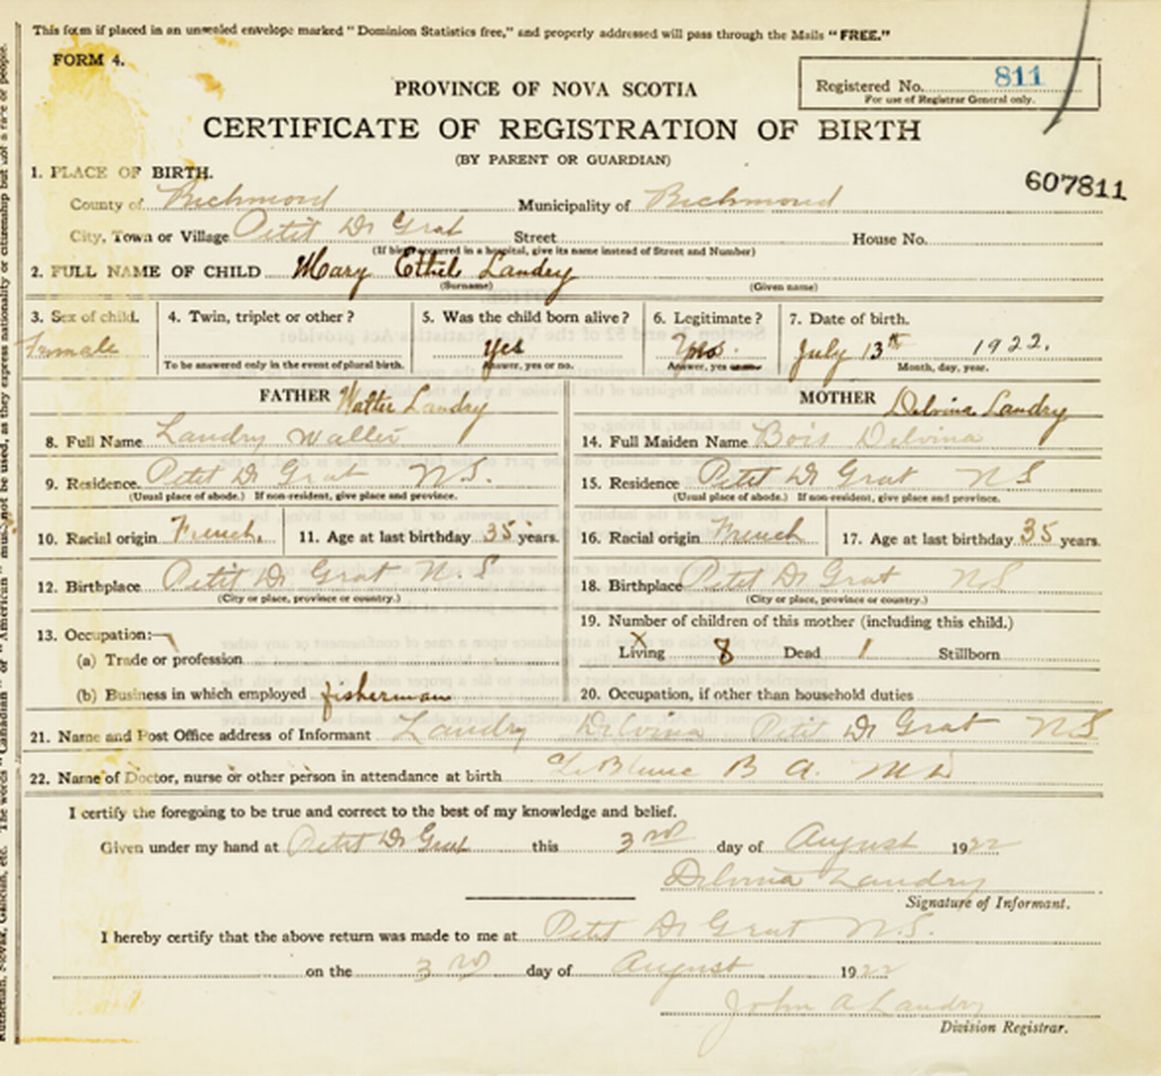 This form if placed in an unsealed envelope marked "Dominion Statistics free," and properly addressed will pass through the Mails "FREE."
FORM 4.
Registered No. 811
For use of Registrar General only.
PROVINCE OF NOVA SCOTIA
CERTIFICATE OF REGISTRATION OF BIRTH
(BY PARENT OR GUARDIAN)
607811
1. PLACE OF BIRTH.
County of Richmond Municipality of Richmond
City, Town or Village Petit Dr Grat Street House No.
(If birth occurred in a hospital, give its name instead of Street and Number)
2. FULL NAME OF CHILD Mary Ethel Landry
(Surname) (Given name)
3. Sex of child. 4. Twin, triplet or other? 5. Was the child born alive? 6. Legitimate? 7. Date of birth.
Female yes yes. July 13th 1922.
To be answered only in the event of plural birth. Answer, yes or no. Answer, yes or no. Month, day, year.
FATHER Walter Landry MOTHER Delvina Landry
8. Full Name Landry Walter 14. Full Maiden Name Bois Delvina
9. Residence Petit Dr Grat N.S. 15. Residence Petit Dr Grat N S
(Usual place of abode.) If non-resident, give place and province. (Usual place of abode.) If non-resident, give place and province.
10. Racial origin French. 11. Age at last birthday 35 years. 16. Racial origin French 17. Age at last birthday 35 years.
12. Birthplace Petit Dr Grat N. S 18. Birthplace Petit Dr Grat N S
(City or place, province or country.) (City or place, province or country.)
13. Occupation:— 19. Number of children of this mother (including this child.)
(a) Trade or profession x Living 8 Dead 1 Stillborn
(b) Business in which employed fisherman 20. Occupation, if other than household duties
21. Name and Post Office address of Informant Landry Delvina Petit Dr Grat N S
22. Name of Doctor, nurse or other person in attendance at birth LeBlanc B A. M D
I certify the foregoing to be true and correct to the best of my knowledge and belief.
Given under my hand at Petit Dr Grat this 3rd day of August 1922
Delvina Landry
Signature of Informant.
I hereby certify that the above return was made to me at Petit Dr Grat N.S.
on the 3rd day of August 1922
John A Landry
Division Registrar.